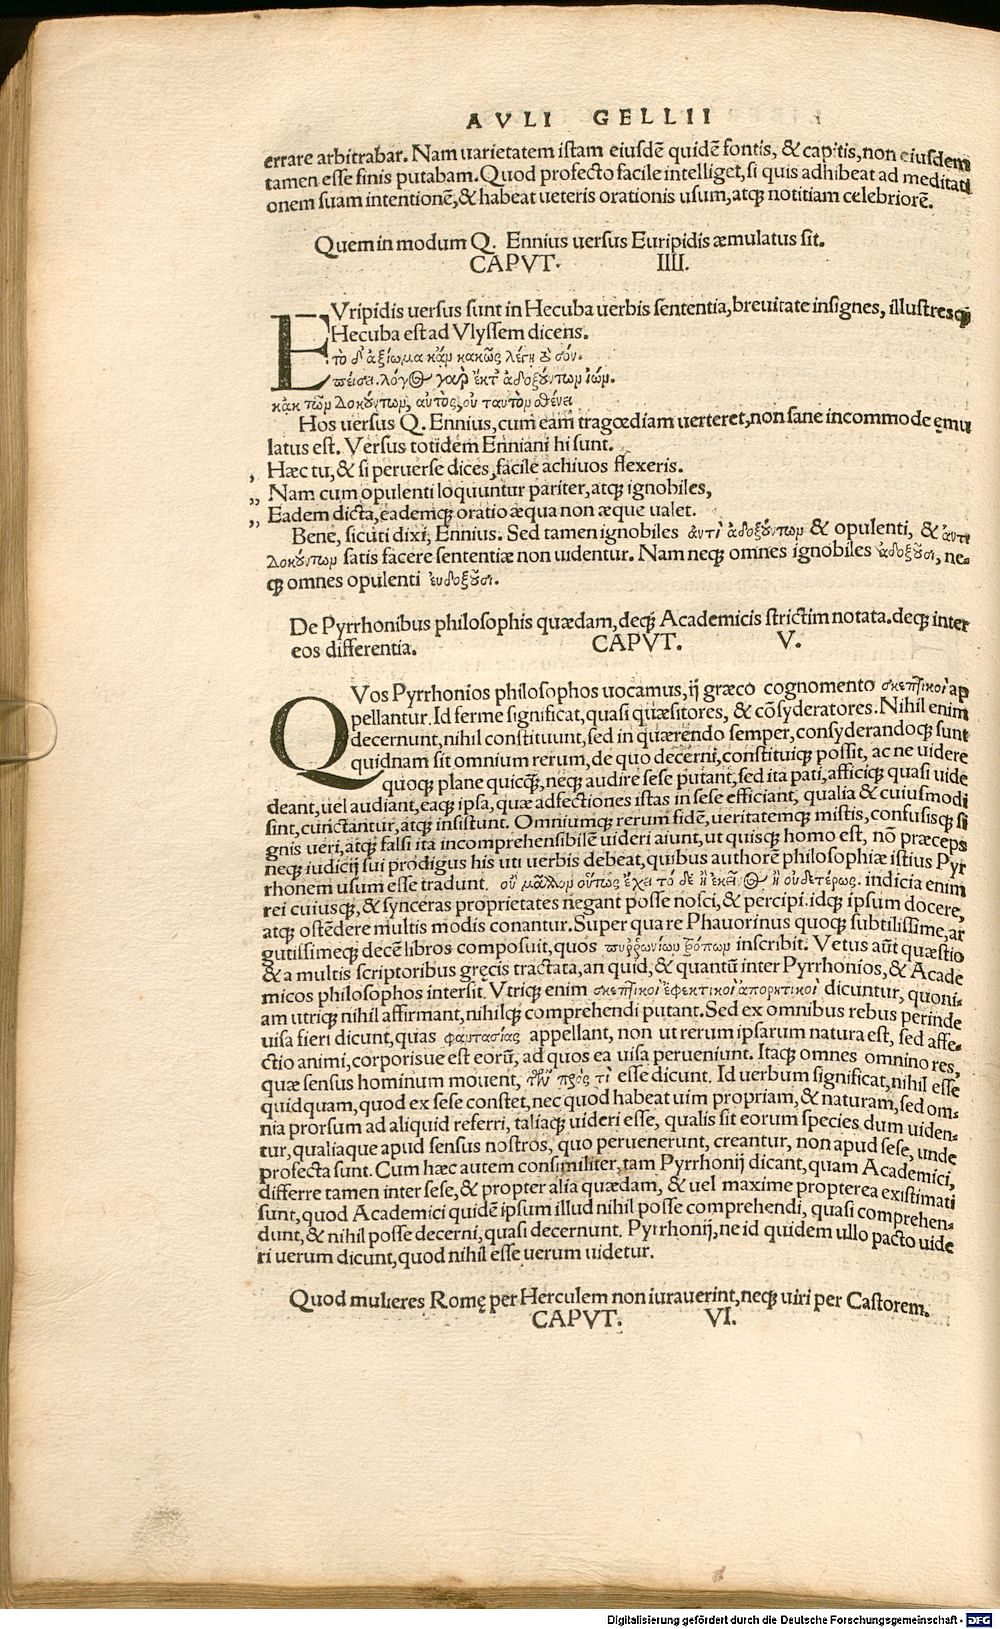 AVLI GELLII
errare arbitrabar. Nam uarietatem istam eiusdē quidē fontis, & capitis, non eiusdem
tamen esse finis putabam. Quod profecto facile intelliget, si quis adhibeat ad meditati
onem suam intentionē, & habeat ueteris orationis usum, atq; notitiam celebriorē.
Quem in modum Q. Ennius uersus Euripidis æmulatus sit.
CAPVT. IIII.
EVripidis uersus sunt in Hecuba uerbis sententia, breuitate insignes, illustresq;
Hecuba est ad Vlyssem dicens.
τὸ δ' ἀξίωμα κἂμ κακῶς λέγῃ τὸ σόν.
πείσει. λόγος γαρ ἐκτ' ἀδοξούντωμ ἰώμ.
κἀκ τῶμ δοκούντωμ, αὐτὸς, οὐ ταυτὸμ σθένει
Hos uersus Q. Ennius, cum eam tragœdiam uerteret, non sane incommode ęmu
latus est. Versus totidem Enniani hi sunt.
, Hæc tu, & si peruerse dices, facile achiuos flexeris.
,, Nam cum opulenti loquuntur pariter, atq; ignobiles,
,, Eadem dicta, eademq; oratio æqua non æque ualet.
Bene, sicuti dixi, Ennius. Sed tamen ignobiles ἀντὶ ἀδοξούντωμ & opulenti, & ἀντὶ
δοκούντωμ satis facere sententiæ non uidentur. Nam neq; omnes ignobiles ἀδοξοῦσι, ne-
q; omnes opulenti ἐυδοξοῦσι.
De Pyrrhonibus philosophis quædam, deq; Academicis strictim notata. deq; inter
eos differentia. CAPVT. V.
QVos Pyrrhonios philosophos uocamus, ij græco cognomento σκεπτικοὶ ap
pellantur. Id ferme significat, quasi quæsitores, & cōsyderatores. Nihil enim
decernunt, nihil constituunt, sed in quærendo semper, consyderandoq; sunt
quidnam sit omnium rerum, de quo decerni, constituiq; possit, ac ne uidere
quoq; plane quicq;, neq; audire sese putant, sed ita pati, afficiq; quasi uide
deant, uel audiant, eaq; ipsa, quæ adfectiones istas in sese efficiant, qualia & cuiusmodi
sint, cunctantur, atq; insistunt. Omniumq; rerum fidē, ueritatemq; mistis, confusisq; si
gnis ueri, atq; falsi ita incomprehensibilē uideri aiunt, ut quisq; homo est, nō præceps
neq; iudicij sui prodigus his uti uerbis debeat, quibus authorē philosophiæ istius Pyr
rhonem usum esse tradunt. οὐ μᾶλλομ οὕτως ἔχει τό δε ἢ ἐκεῖνος ἢ οὐδετέρως. indicia enim
rei cuiusq;, & synceras proprietates negant posse nosci, & percipi. idq; ipsum docere,
atq; ostēdere multis modis conantur. Super qua re Phauorinus quoq; subtilissime, ar
gutissimeq; decē libros composuit, quos πυῤῥωνίωμ τρόπωμ inscribit. Vetus aūt quæstio
& a multis scriptoribus gręcis tractata, an quid, & quantū inter Pyrrhonios, & Acade
micos philosophos intersit. Vtriq; enim σκεπτικοὶ ἐφεκτικοὶ ἀπορητικοὶ dicuntur, quoni-
am utriq; nihil affirmant, nihilq; comprehendi putant. Sed ex omnibus rebus perinde
uisa fieri dicunt, quas φαντασίας appellant, non ut rerum ipsarum natura est, sed affe-
ctio animi, corporisue est eorū, ad quos ea uisa perueniunt. Itaq; omnes omnino res,
quæ sensus hominum mouent, τῶν πρὸς τὶ esse dicunt. Id uerbum significat, nihil esse
quidquam, quod ex sese constet, nec quod habeat uim propriam, & naturam, sed om-
nia prorsum ad aliquid referri, taliaq; uideri esse, qualis sit eorum species dum uiden-
tur, qualiaque apud sensus nostros, quo peruenerunt, creantur, non apud sese, unde
profecta sunt. Cum hæc autem consimiliter, tam Pyrrhonij dicant, quam Academici,
differre tamen inter sese, & propter alia quædam, & uel maxime propterea existimati
sunt, quod Academici quidē ipsum illud nihil posse comprehendi, quasi comprehen-
dunt, & nihil posse decerni, quasi decernunt. Pyrrhonij, ne id quidem ullo pacto uide
ri uerum dicunt, quod nihil esse uerum uidetur.
Quod mulieres Romę per Herculem non iurauerint, neq; uiri per Castorem.
CAPVT. VI.
Digitalisierung gefördert durch die Deutsche Forschungsgemeinschaft - DFG